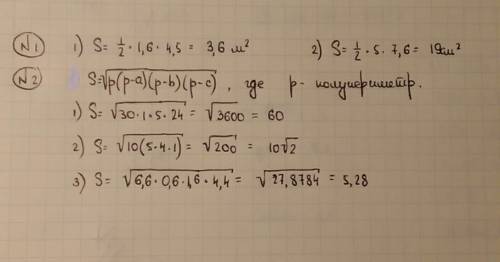 №1 1) S = 1/2 · 1,6 · 4,5 = 3,6 м² 2) S = 1/2 · 5 · 7,6 = 19 см²
№2 S = √(p(p-a)(p-b)(p-c)) , где p - полупериметр.
1) S = √(30·1·5·24) = √3600 = 60
2) S = √(10(5·4·1)) = √200 = 10√2
3) S = √(6,6 · 0,6 · 1,6 · 4,4) = √27,8784 = 5,28